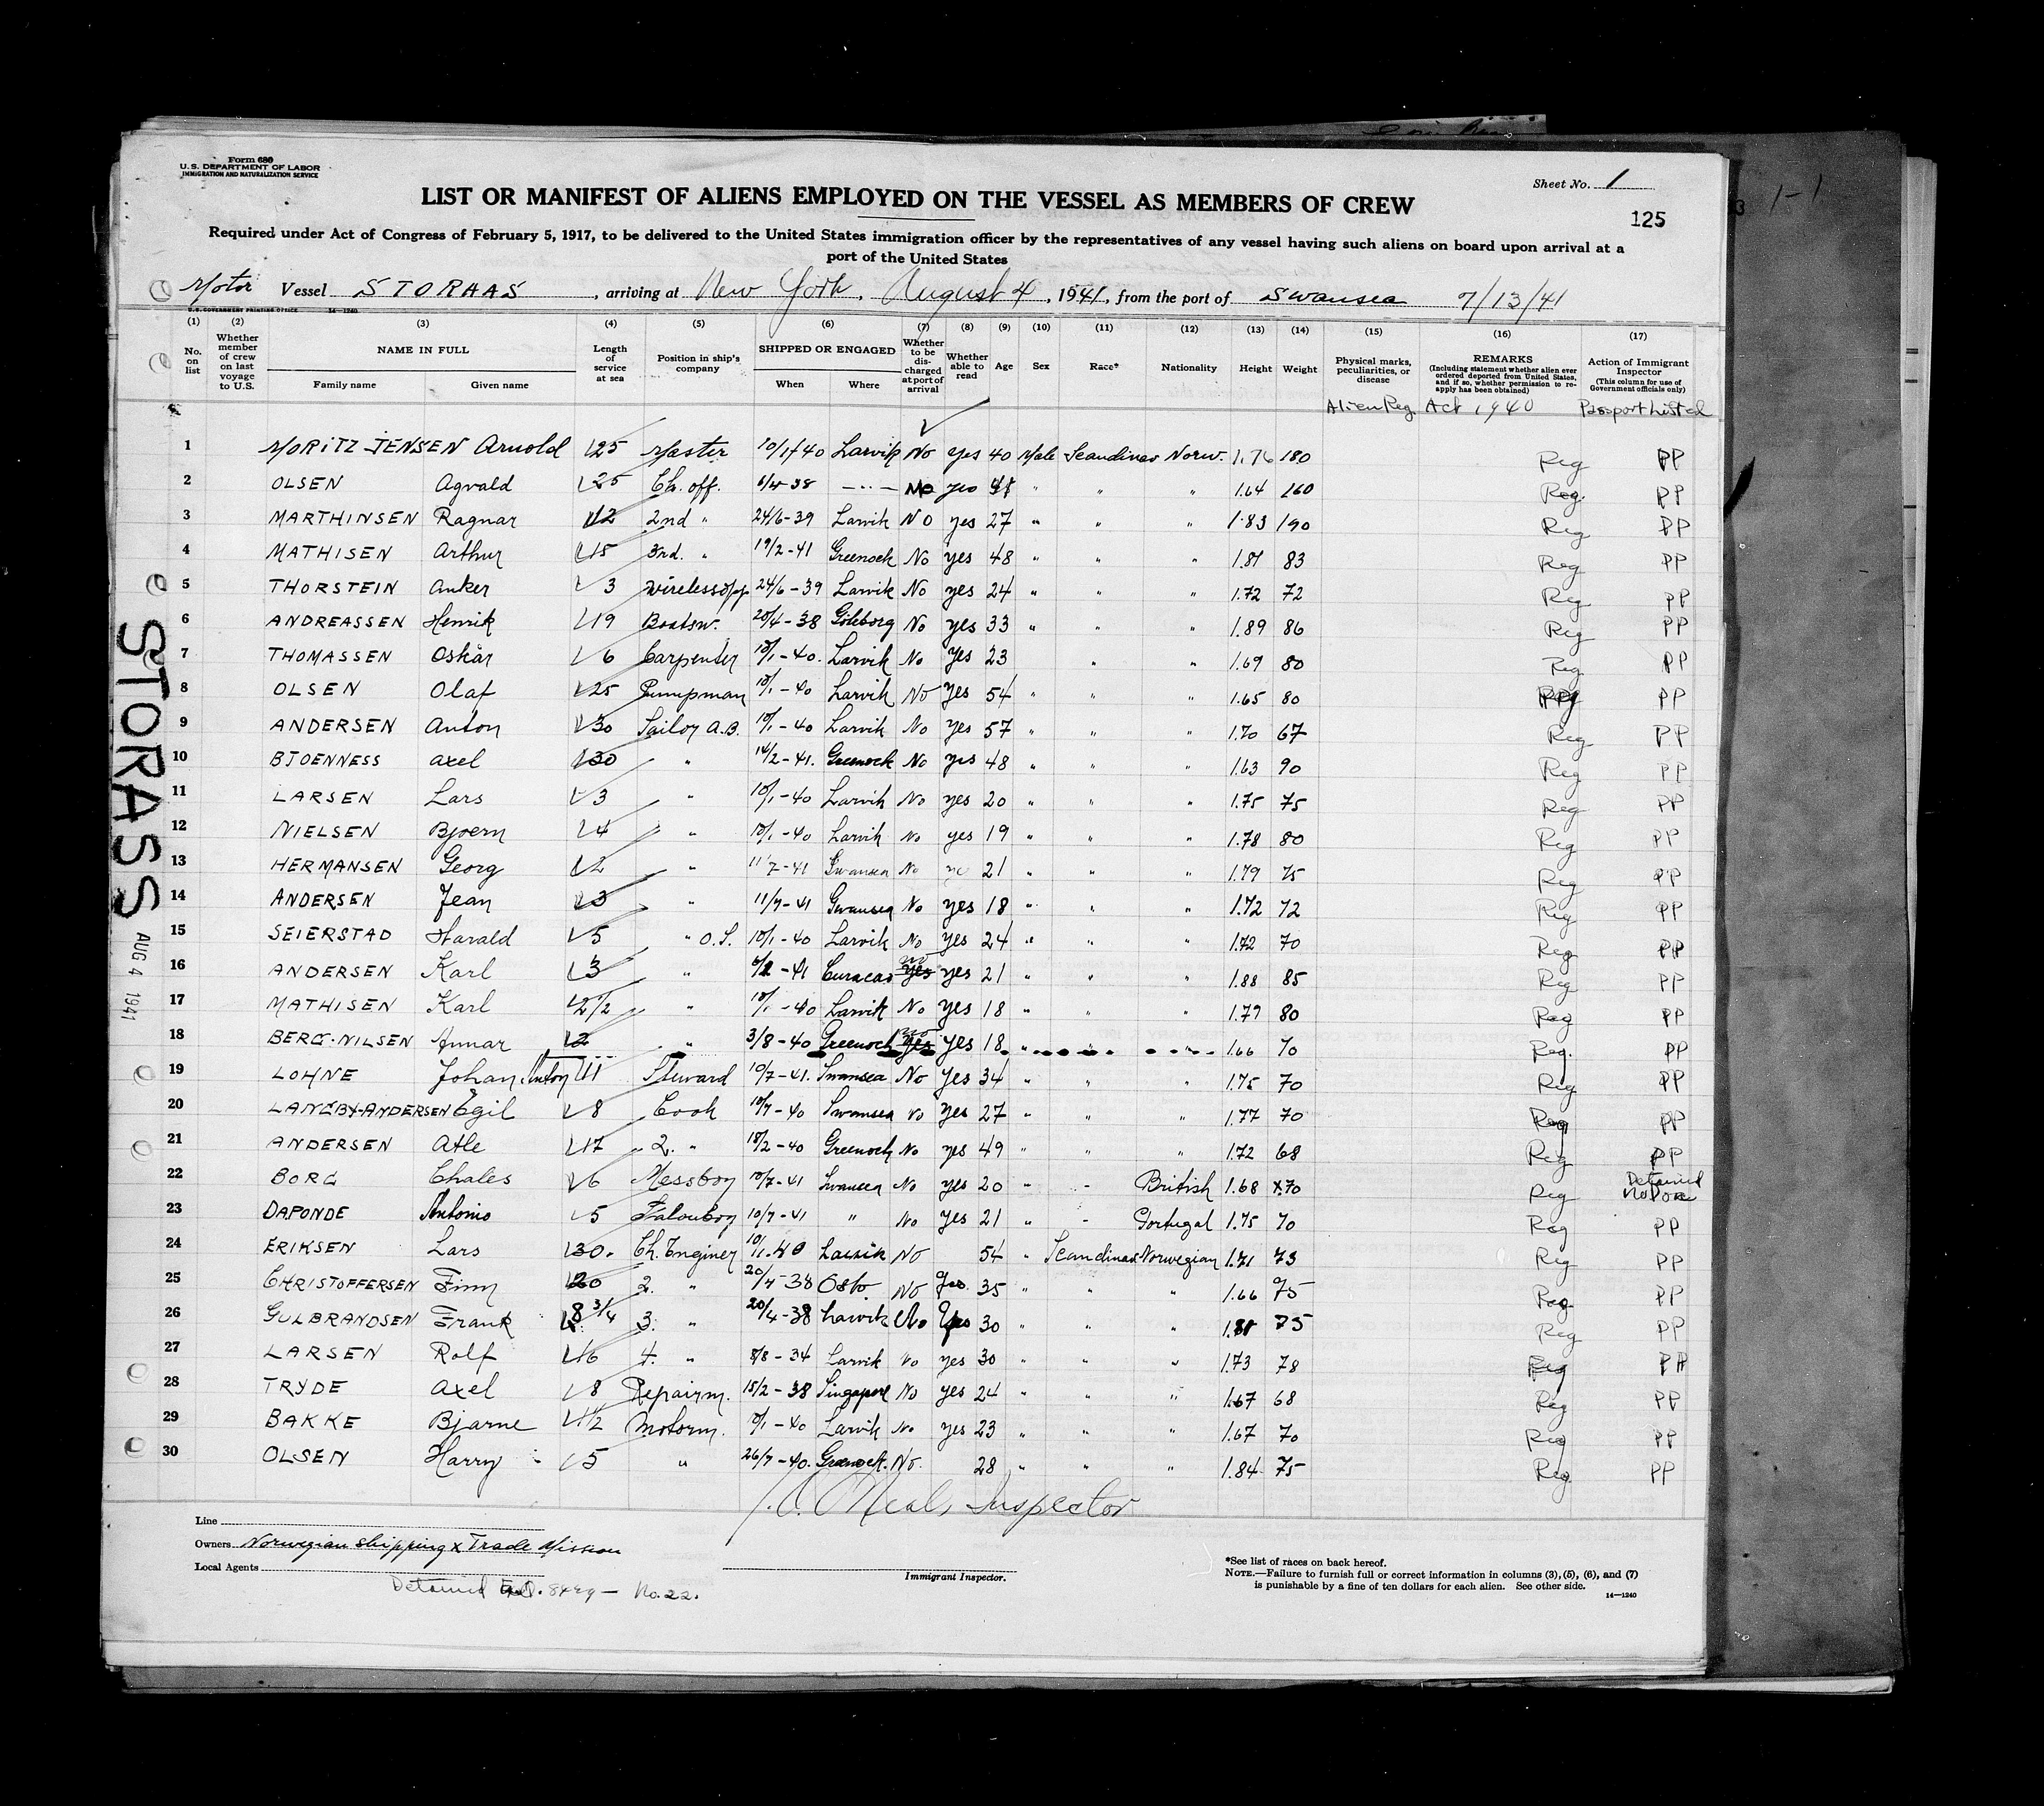 Form 680
U.S. DEPARTMENT OF LABOR
IMMIGRATION AND NATURALIZATION SERVICE
Sheet No. 1
LIST OR MANIFEST OF ALIENS EMPLOYED ON THE VESSEL AS MEMBERS OF CREW
125
Required under Act of Congress of February 5, 1917, to be delivered to the United States immigration officer by the representatives of any vessel having such aliens on board upon arrival at a
port of the United States
Motor Vessel STORAAS, arriving at New York, August 4, 1941, from the port of Swansea 7/13/41
U.S. GOVERNMENT PRINTING OFFICE 14—1240
(1) (2) (3) (4) (5) (6) (7) (8) (9) (10) (11) (12) (13) (14) (15) (16) (17)
No. on list
Whether member of crew on last voyage to U.S.
NAME IN FULL
Family name Given name
Length of service at sea
Position in ship's company
SHIPPED OR ENGAGED
When Where
Whether to be discharged at port of arrival
Whether able to read
Age
Sex
Race*
Nationality
Height
Weight
Physical marks, peculiarities, or disease
REMARKS
(Including statement whether alien ever ordered deported from United States, and if so, whether permission to reapply has been obtained)
Action of Immigrant Inspector
(This column for use of Government officials only)
Alien Reg Act 1940 Passport Listed
1 MORITZ JENSEN Arnold 25 Master 10/1 40 Larvik No yes 40 Male Scandinav Norw. 1.76 180 Reg PP
2 OLSEN Agvald 25 Ch. off. 38 — .. — No yes " " " 1.64 160 Reg. PP
3 MARTHINSEN Ragnar 12 2nd " 24/6-39 Larvik No yes 27 " " " 1.83 190 Reg PP
4 MATHISEN Arthur 15 3rd. " 19/2-41 Greenock No yes 48 " " " 1.81 83 Reg PP
5 THORSTEIN Anker 3 wirelessop. 24/6-39 Larvik No yes 24 " " " 1.72 72 Reg PP
6 ANDREASSEN Henrik 19 Boatsw. 20/4-38 Göteborg No yes 33 " " " 1.89 86 Reg PP
7 THOMASSEN Oskar 6 Carpenter 10/1-40. Larvik No yes 23 " " 1.69 80 Reg PP
8 OLSEN Olaf 25 Pumpman 10/1-40 Larvik No yes 54 " " " 1.65 80 Reg PP
9 ANDERSEN Anton 30 Sailor A.B. 10/1-40 Larvik No yes 57 " " " 1.70 67 Reg PP
10 BJOENNESS Axel 30 " 14/2-41. Greenock No yes 48 " " " 1.63 90 Reg PP
11 LARSEN Lars 3 " 10/1-40 Larvik No yes 20 " " " 1.75 75 Reg PP
12 NIELSEN Bjoern 4 " 10/1-40 Larvik No yes 19 " " " 1.78 80 Reg PP
13 HERMANSEN Georg 2 " 11/7-41 Swansea No 21 " " " 1.79 75 Reg PP
14 ANDERSEN Jean 3 " 11/7-41 Swansea No yes 18 " " " 1.72 72 Reg PP
15 SEIERSTAD Harald 5 " O.S. 10/1-40 Larvik No yes 24 " " " 1.72 70 Reg PP
16 ANDERSEN Karl 3 " -41 Curacao No yes yes 21 " " " 1.88 85 Reg PP
17 MATHISEN Karl 2 1/2 " 10/1-40 Larvik No yes 18 " " " 1.79 80 Reg PP
18 BERG-NILSEN Annar 2 " 3/8-40 Greenock No yes yes 18 " " " 1.66 70 Reg. PP
19 LOHNE Johan Anton 11 Steward 10/7-41. Swansea No yes 34 " " " 1.75 70 Reg PP
20 LANGBY-ANDERSEN Egil 8 Cook 10/7-40 Swansea No yes 27 " " " 1.77 70 Reg PP
21 ANDERSEN Atle 17 2. " 18/2-40 Greenock No yes 49 " " " 1.72 68 Reg PP
22 BORG Chales 6 Messboy 10/7-41 Swansea No yes 20 " - British 1.68 70 Reg Detained
23 DAPONDE Antonio 5 10/7-41 " No yes 21 " - Portugal 1.75 70 Reg PP
24 ERIKSEN Lars 30. Ch. Enginer 10/11.40 Larvik No 54 " Scandinav Norwegian 1.71 73 Reg PP
25 CHRISTOFFERSEN Finn 20 2. " 20/4-38 Oslo. No yes. 35 " " " 1.66 75 Reg PP
26 GULBRANDSEN Frank 8 3/4 3. " 20/4-38 Larvik No yes 30 " " " 75 Reg PP
27 LARSEN Rolf 16 4. " 8/8-34 Larvik No yes 30 " " " 1.73 78 Reg PP
28 TRYDE Axel 8 Repairm. 15/2-38 Singapore No yes 24 " " " 1.67 68 Reg PP
29 BAKKE Bjarne 1 1/2 Motorm. 10/1-40 Larvik No yes 23 " " " 1.67 70 Reg PP
30 OLSEN Harry 5 " 26/7-40. Greenock. No. 28 " " " 1.84 75 Reg. PP
O'Neal, Inspector
Line
Owners Norwegian Shipping & Trade Mission
Local Agents
Immigrant Inspector.
Detained No. 22.
*See list of races on back hereof.
NOTE.—Failure to furnish full or correct information in columns (3), (5), (6), and (7)
is punishable by a fine of ten dollars for each alien. See other side.
14—1240
STORASS
AUG 4 1941
1-1